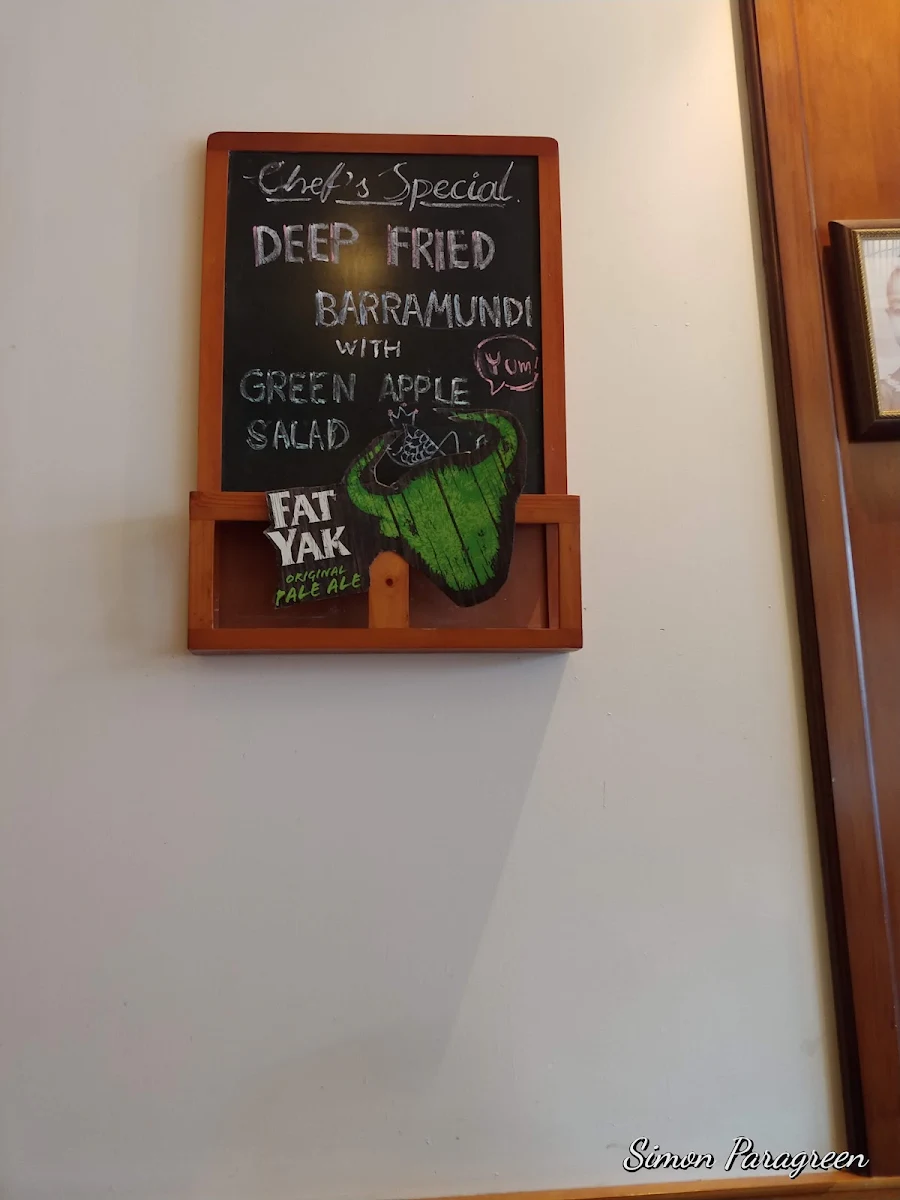 Chef's Special.
DEEP FRIED
BARRAMUNDI
WITH
Yum!
GREEN APPLE
SALAD
FAT
YAK
ORIGINAL
PALE ALE
Simon Paragreen